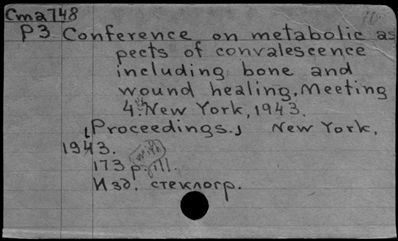 Cma748
P3 Conference on metabolic as
pects of convalescence
including bone and
wound healing, Meeting
4th New York, 1943.
[Proceedings.] New York,
1943.
173 p. ill.
Изд. стеклогр.